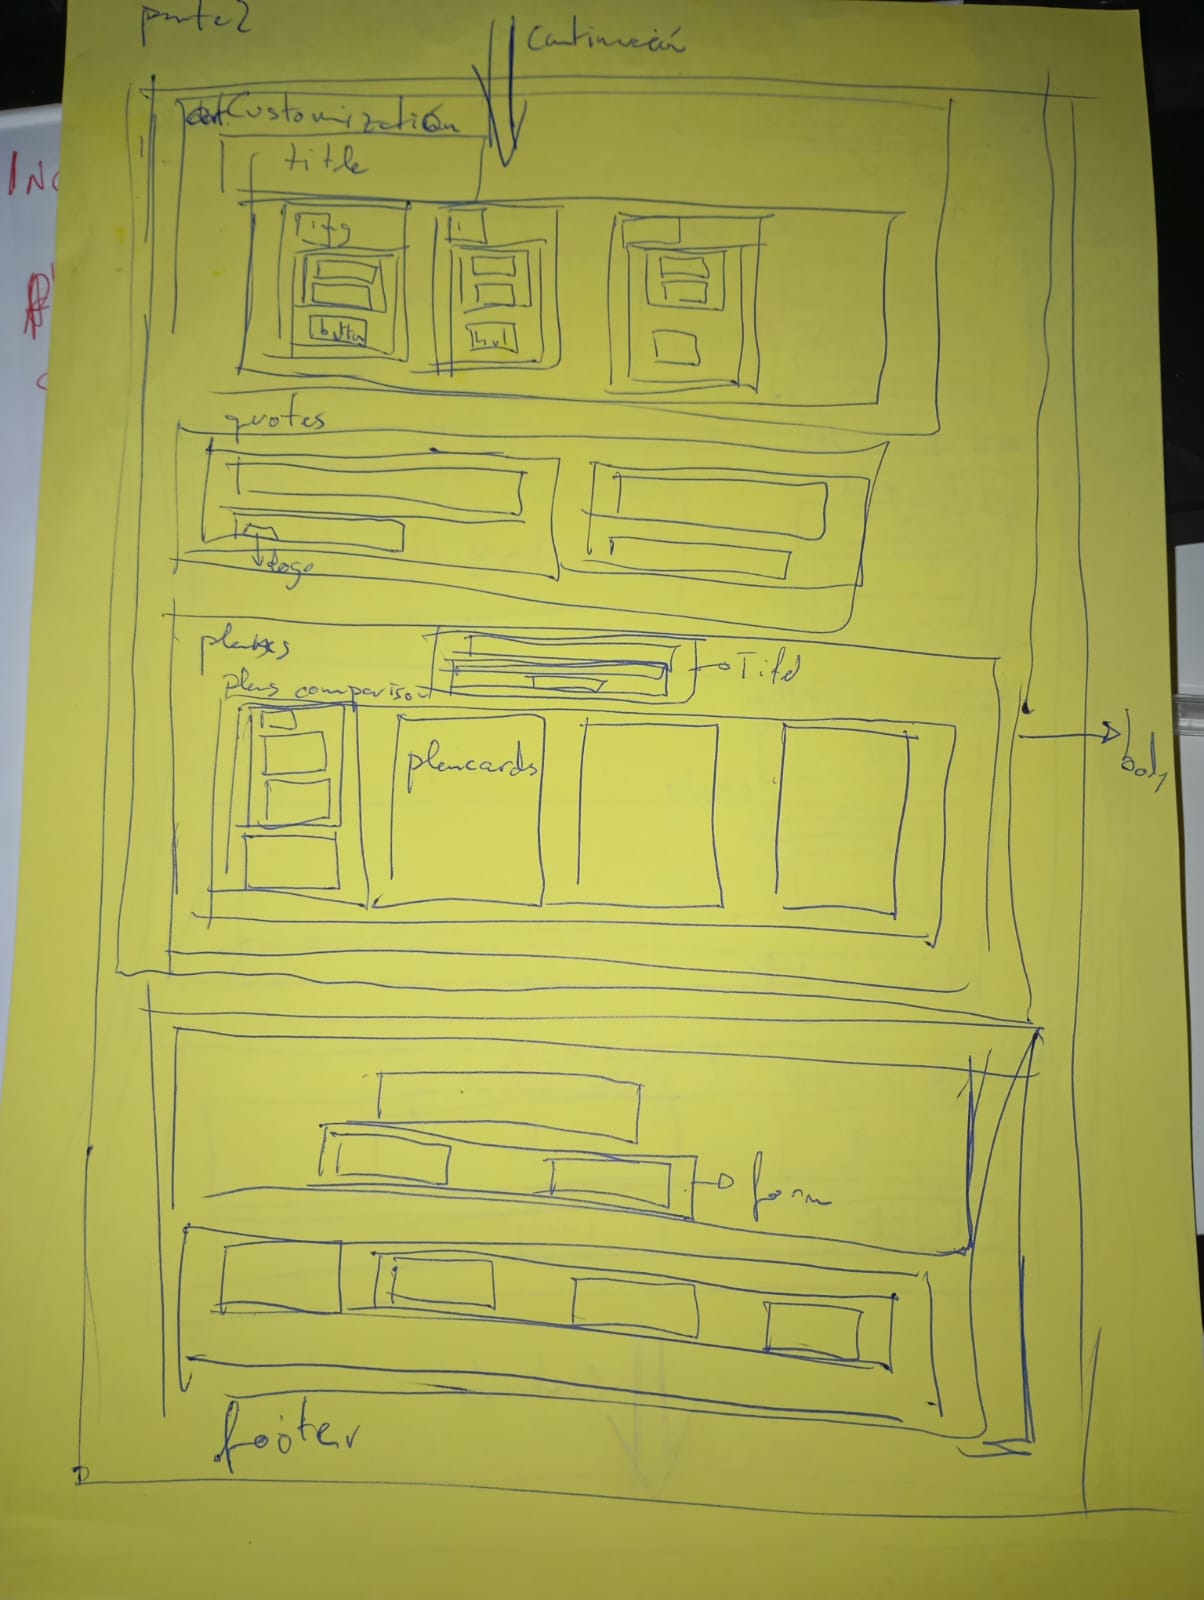 parte 2
continuación
Customización
title
img
i
button
but
quotes
logo
planes
plans comparison
Titel
plancards
body
form
footer